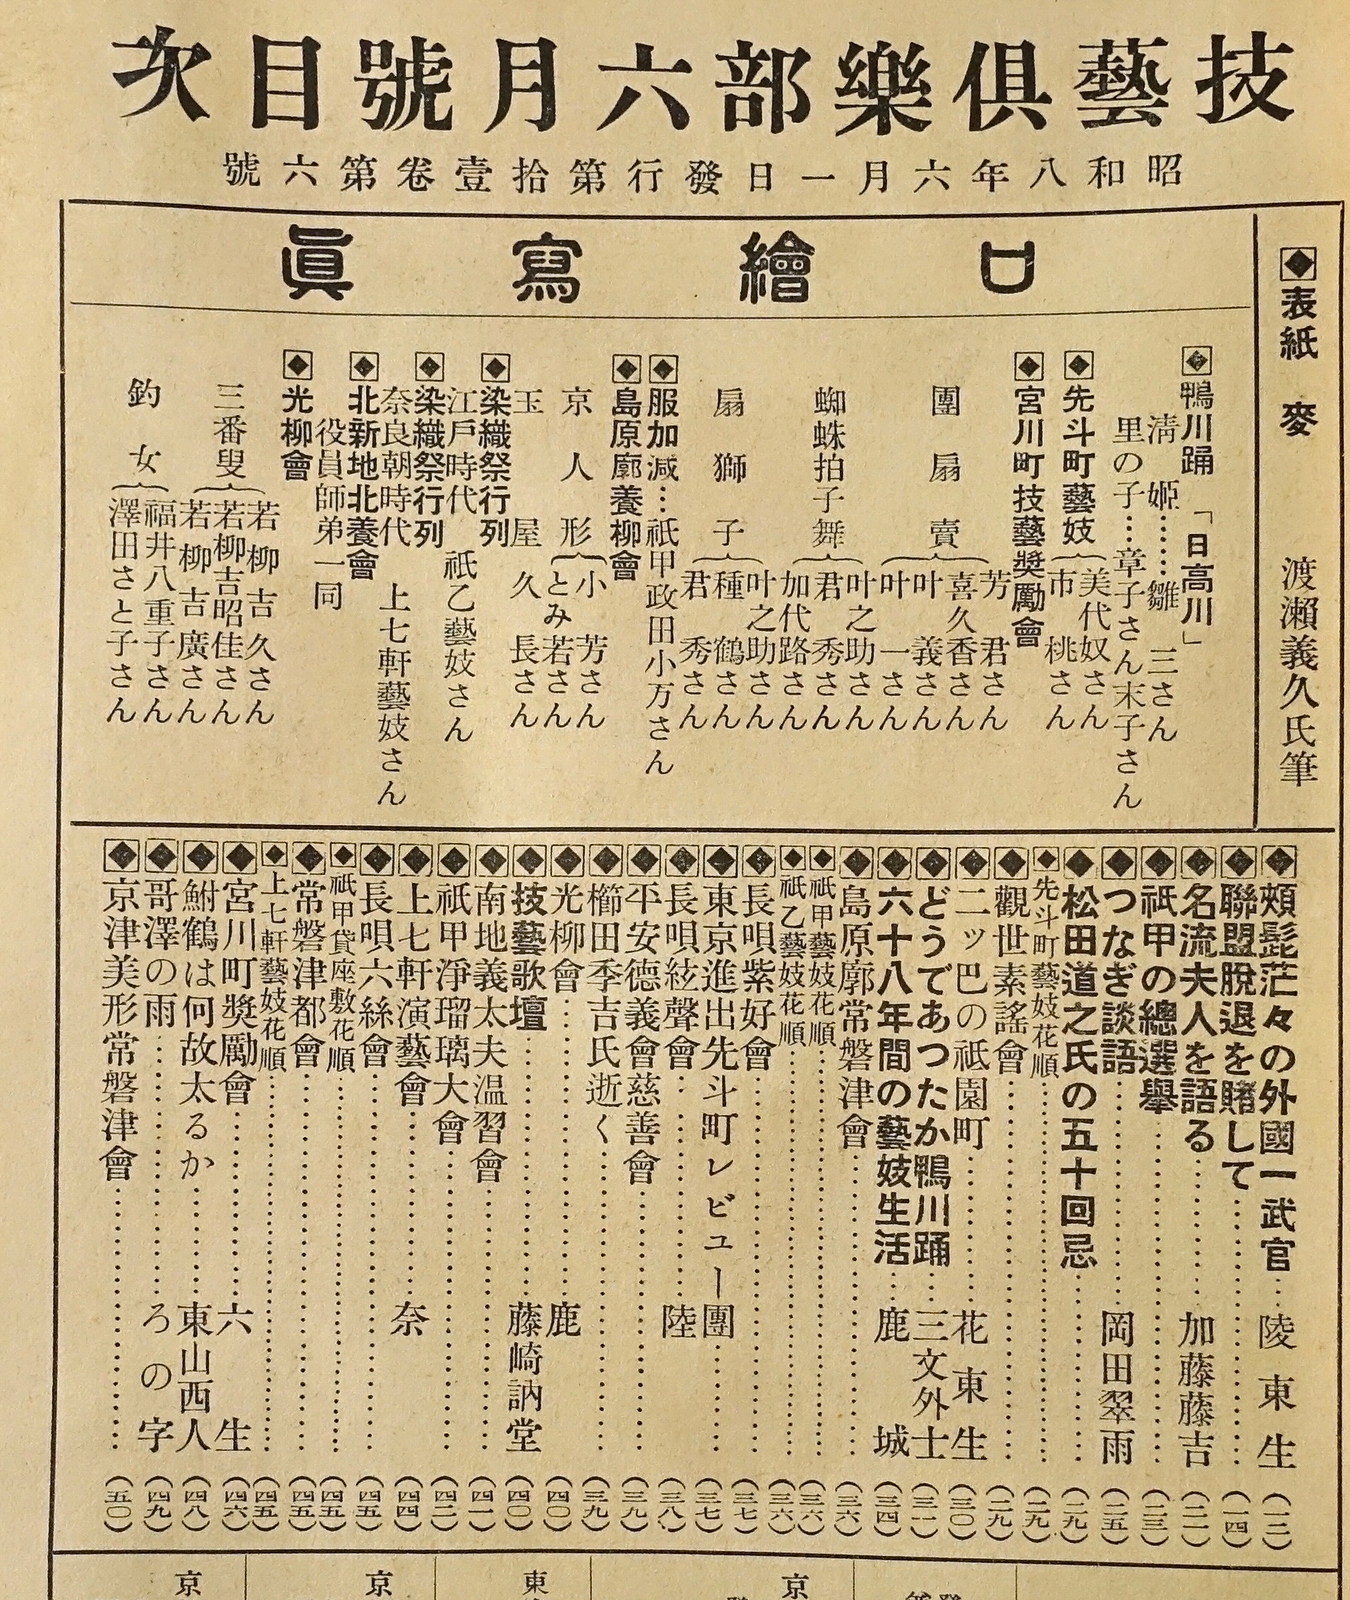 技藝倶樂部六月號目次
昭和八年六月一日發行第拾壹卷第六號
◆表紙 麥 渡瀨義久氏筆
口繪寫眞
◆鴨川踊「日高川」
淸姬……雛三さん
里の子…章子さん末子さん
◆先斗町藝妓
美代奴さん
市桃さん
◆宮川町技藝奬勵會
團扇賣
芳君さん
喜久香さん
叶義さん
叶一さん
蜘蛛拍子舞
叶之助さん
君秀さん
加代路さん
扇獅子
叶之助さん
種鶴さん
君秀さん
◆服加減…祇甲政田小万さん
◆島原廓養柳會
京人形
小芳さん
とみ若さん
玉屋 久長さん
◆染織祭行列
江戶時代 祇乙藝妓さん
◆染織祭行列
奈良朝時代 上七軒藝妓さん
◆北新地北養會
役員師弟一同
◆光柳會
三番叟
若柳吉久さん
若柳吉昭佳さん
若柳吉廣さん
釣女
福井八重子さん
澤田さと子さん
◆頰髭茫々の外國一武官…陵東生(一二)
◆聯盟脫退を賭して…(一四)
◆名流夫人を語る…加藤藤吉(二一)
◆祇甲の總選擧…(二三)
◆つなぎ談語…岡田翠雨(二五)
◆松田道之氏の五十回忌…(二九)
◆先斗町藝妓花順…(二九)
◆觀世素謠會…(二九)
◆二ッ巴の祇園町…花東生(三〇)
◆どうであつたか鴨川踊…三文外士(三一)
◆六十八年間の藝妓生活…鹿城(三四)
◆島原廓常磐津會…(三六)
◆祇甲藝妓花順…(三六)
◆祇乙藝妓花順…(三六)
◆長唄紫好會…(三七)
◆東京進出先斗町レビュー團…(三七)
◆長唄絃聲會…陸(三八)
◆平安德義會慈善會…(三九)
◆櫛田季吉氏逝く…(三九)
◆光柳會…鹿(四〇)
◆技藝歌壇…藤崎訥堂(四〇)
◆南地義太夫溫習會…(四一)
◆祇甲淨瑠璃大會…(四二)
◆上七軒演藝會…奈(四四)
◆長唄六絲會…(四五)
◆祇甲貸座敷花順…(四五)
◆常磐津都會…(四五)
◆上七軒藝妓花順…(四五)
◆宮川町奬勵會…六生(四六)
◆鮒鶴は何故太るか…東山西人(四八)
◆哥澤の雨…ろの字(四九)
◆京津美形常磐津會…(五〇)
京
東
京
京